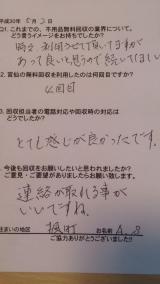 平成30年 5月 2日
Q1. これまでの、不用品無料回収の業界について、
どう言うイメージをお持ちでしたか？
時々利用させて頂いてますが
あって良いと思うので続いてほしい
2. 富仙の無料回収を利用したのは何回目ですか？
4回目
3. 回収担当者の電話対応や回収時の対応は
どうでしたか？
とても感じが良かったです。
今後も回収をお願いしたいと思われましたか？
ご意見・ご要望がありましたらお願い致します。
連絡が取れる事が
いいですね。
住まいの地区
お名前
ご協力ありがとうございました!!